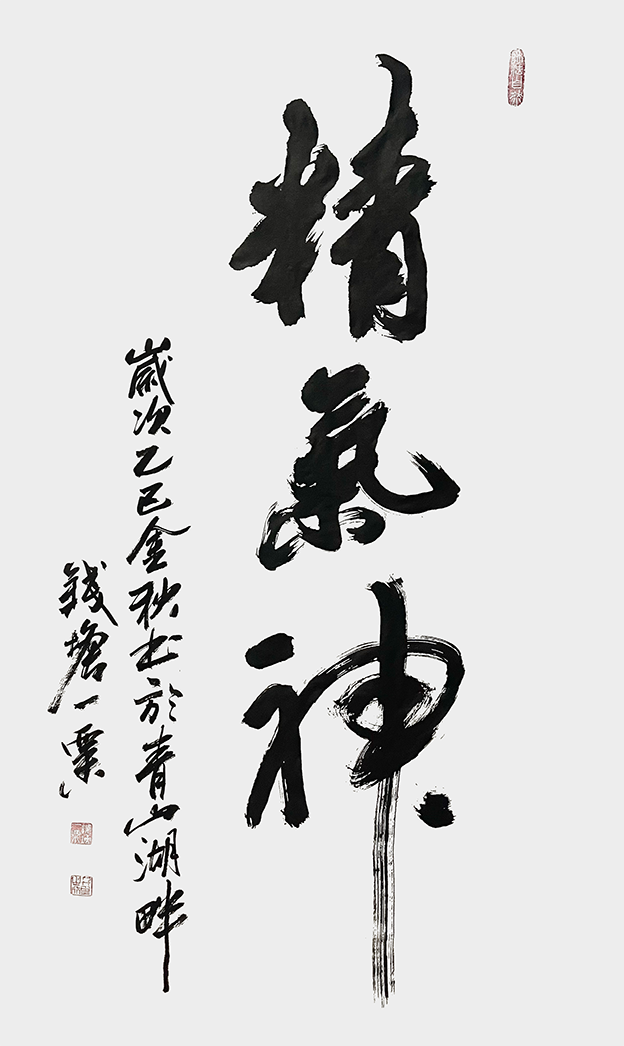 精氣神
歲次乙巳金秋書於青山湖畔
錢塘一粟